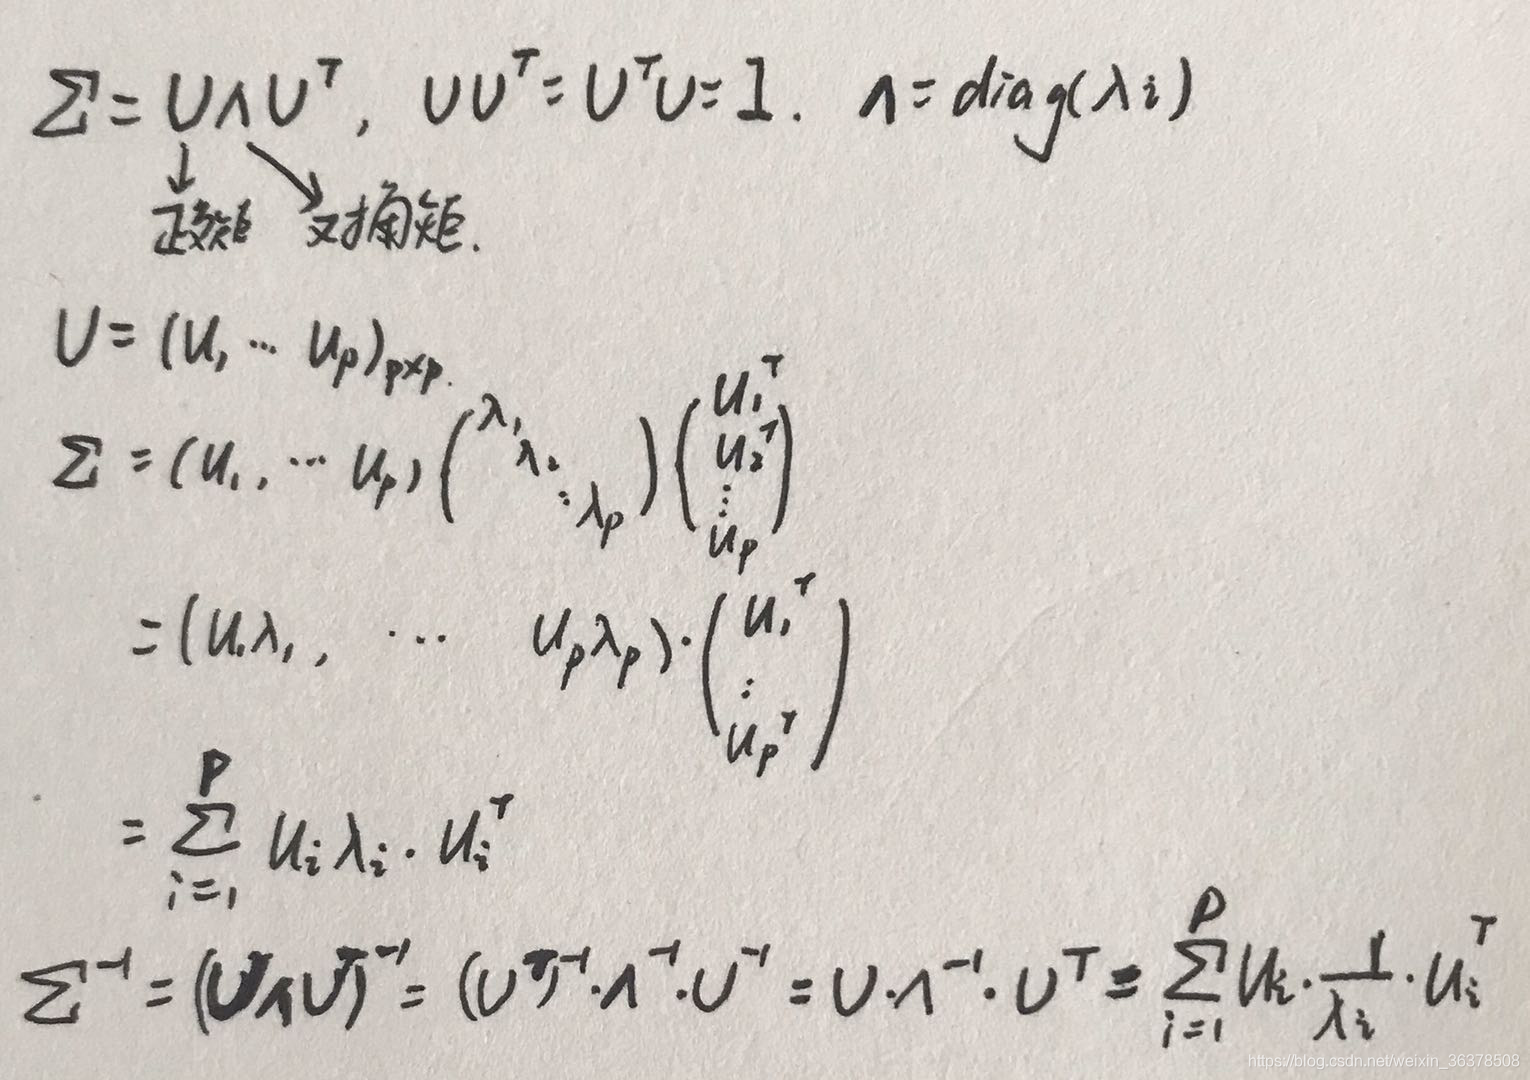 Σ = UΛU^T, UU^T = U^TU = I. Λ = diag(λi)
正交矩 对角矩.
U = (u1 ⋯ up)p×p.
Σ = (u1, ⋯ up) (λ1 λ2 ⋱ λp) (u1^T u2^T ⋮ up)
= (u1λ1, ⋯ upλp) · (u1^T ⋮ up^T)
= Σ_{i=1}^{P} ui λi · ui^T
Σ^-1 = (UΛU^T)^-1 = (U^T)^-1 · Λ^-1 · U^-1 = U · Λ^-1 · U^T = Σ_{i=1}^{P} ui · 1/λi · ui^T
https://blog.csdn.net/weixin_36378508